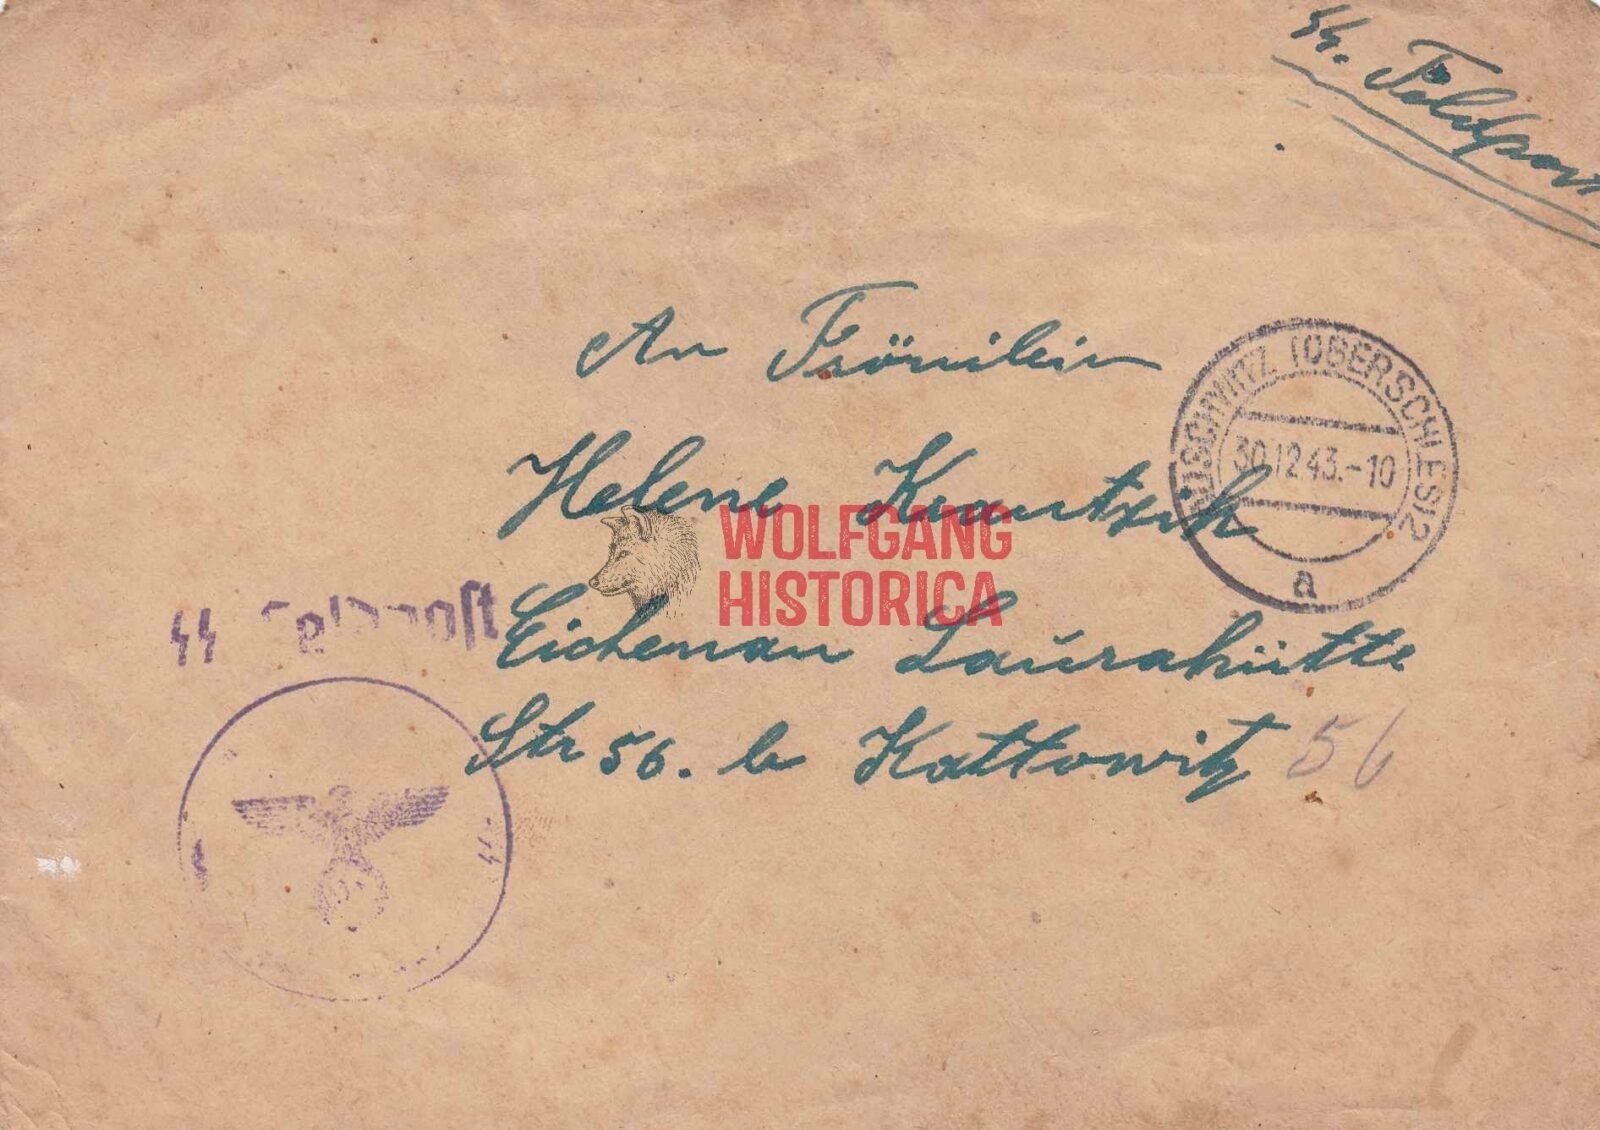 SS. Feldpost
An Fräulein
AUSCHWITZ (OBERSCHLES) 2
30.12.43.-10
a
Helene Krautzik
WOLFGANG
HISTORICA
SS Feldpost
Eichenau Laurahütte
Str 56. b Kattowitz 56